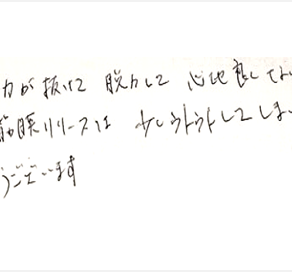 力が抜けて 脱力して 心地良くて
筋膜リリースは 少しウトウトしてしま
うございます